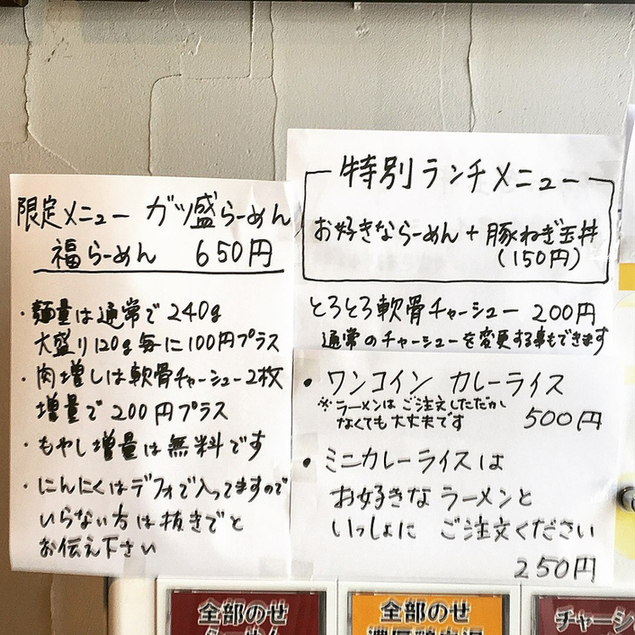 限定メニュー ガツ盛らーめん
福らーめん 650円
・麺量は通常で240g
大盛り120g毎に100円プラス
・肉増しは軟骨チャーシュー2枚
増量で200円プラス
・もやし増量は無料です
・にんにくはデフォで入ってますので
いらない方は抜きでと
お伝え下さい
特別ランチメニュー
お好きならーめん+豚ねぎ玉丼
(150円)
とろとろ軟骨チャーシュー 200円
通常のチャーシューを変更する事もできます
・ワンコイン カレーライス
※ラーメンはご注文しただかなくても大丈夫です
500円
・ミニカレーライスは
お好きなラーメンと
いっしょに ご注文ください
250円
全部のせ
らーめん
全部のせ
チャーシ